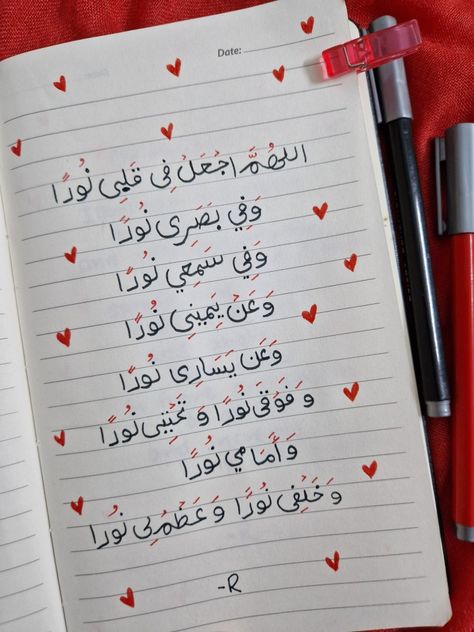 Date:
اللهُمَّ اجْعَلْ فِي قَلْبِي نُورًا
وَفِي بَصَرِي نُورًا
وَفِي سَمْعِي نُورًا
وَعَنْ يَمِينِي نُورًا
وَعَن يَسَارِي نُورًا
وَفَوْقِي نُورًا وَتَحْتِي نُورًا
وَأَمَامِي نُورًا
وَخَلْفِي نُورًا وَعَظِّمْ لِي نُورًا
-R